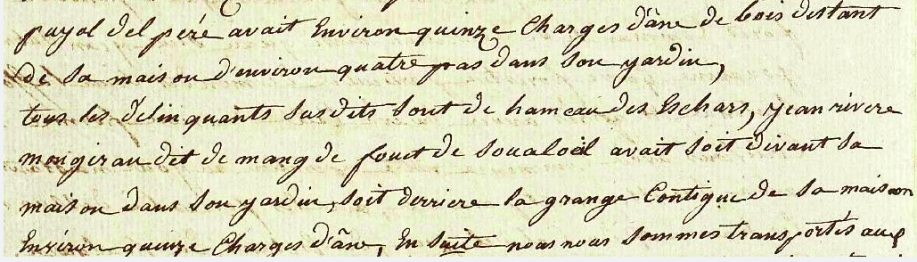 payol del péré avait Environ quinze Charges d'âne de bois distant
de Sa maison d'environ quatre pas dans Son yardin,
tous les délinquants Susdits Sont de hameau des Eschars, yean rivere
mongirau dit de mang de fouet de Soualoil avait Soit divant Sa
maison dans Son yardin, Soit derriere la grange Contigue de Sa maison
Environ quinze Charges d'âne, En Suite nous nous Sommes transportés aux